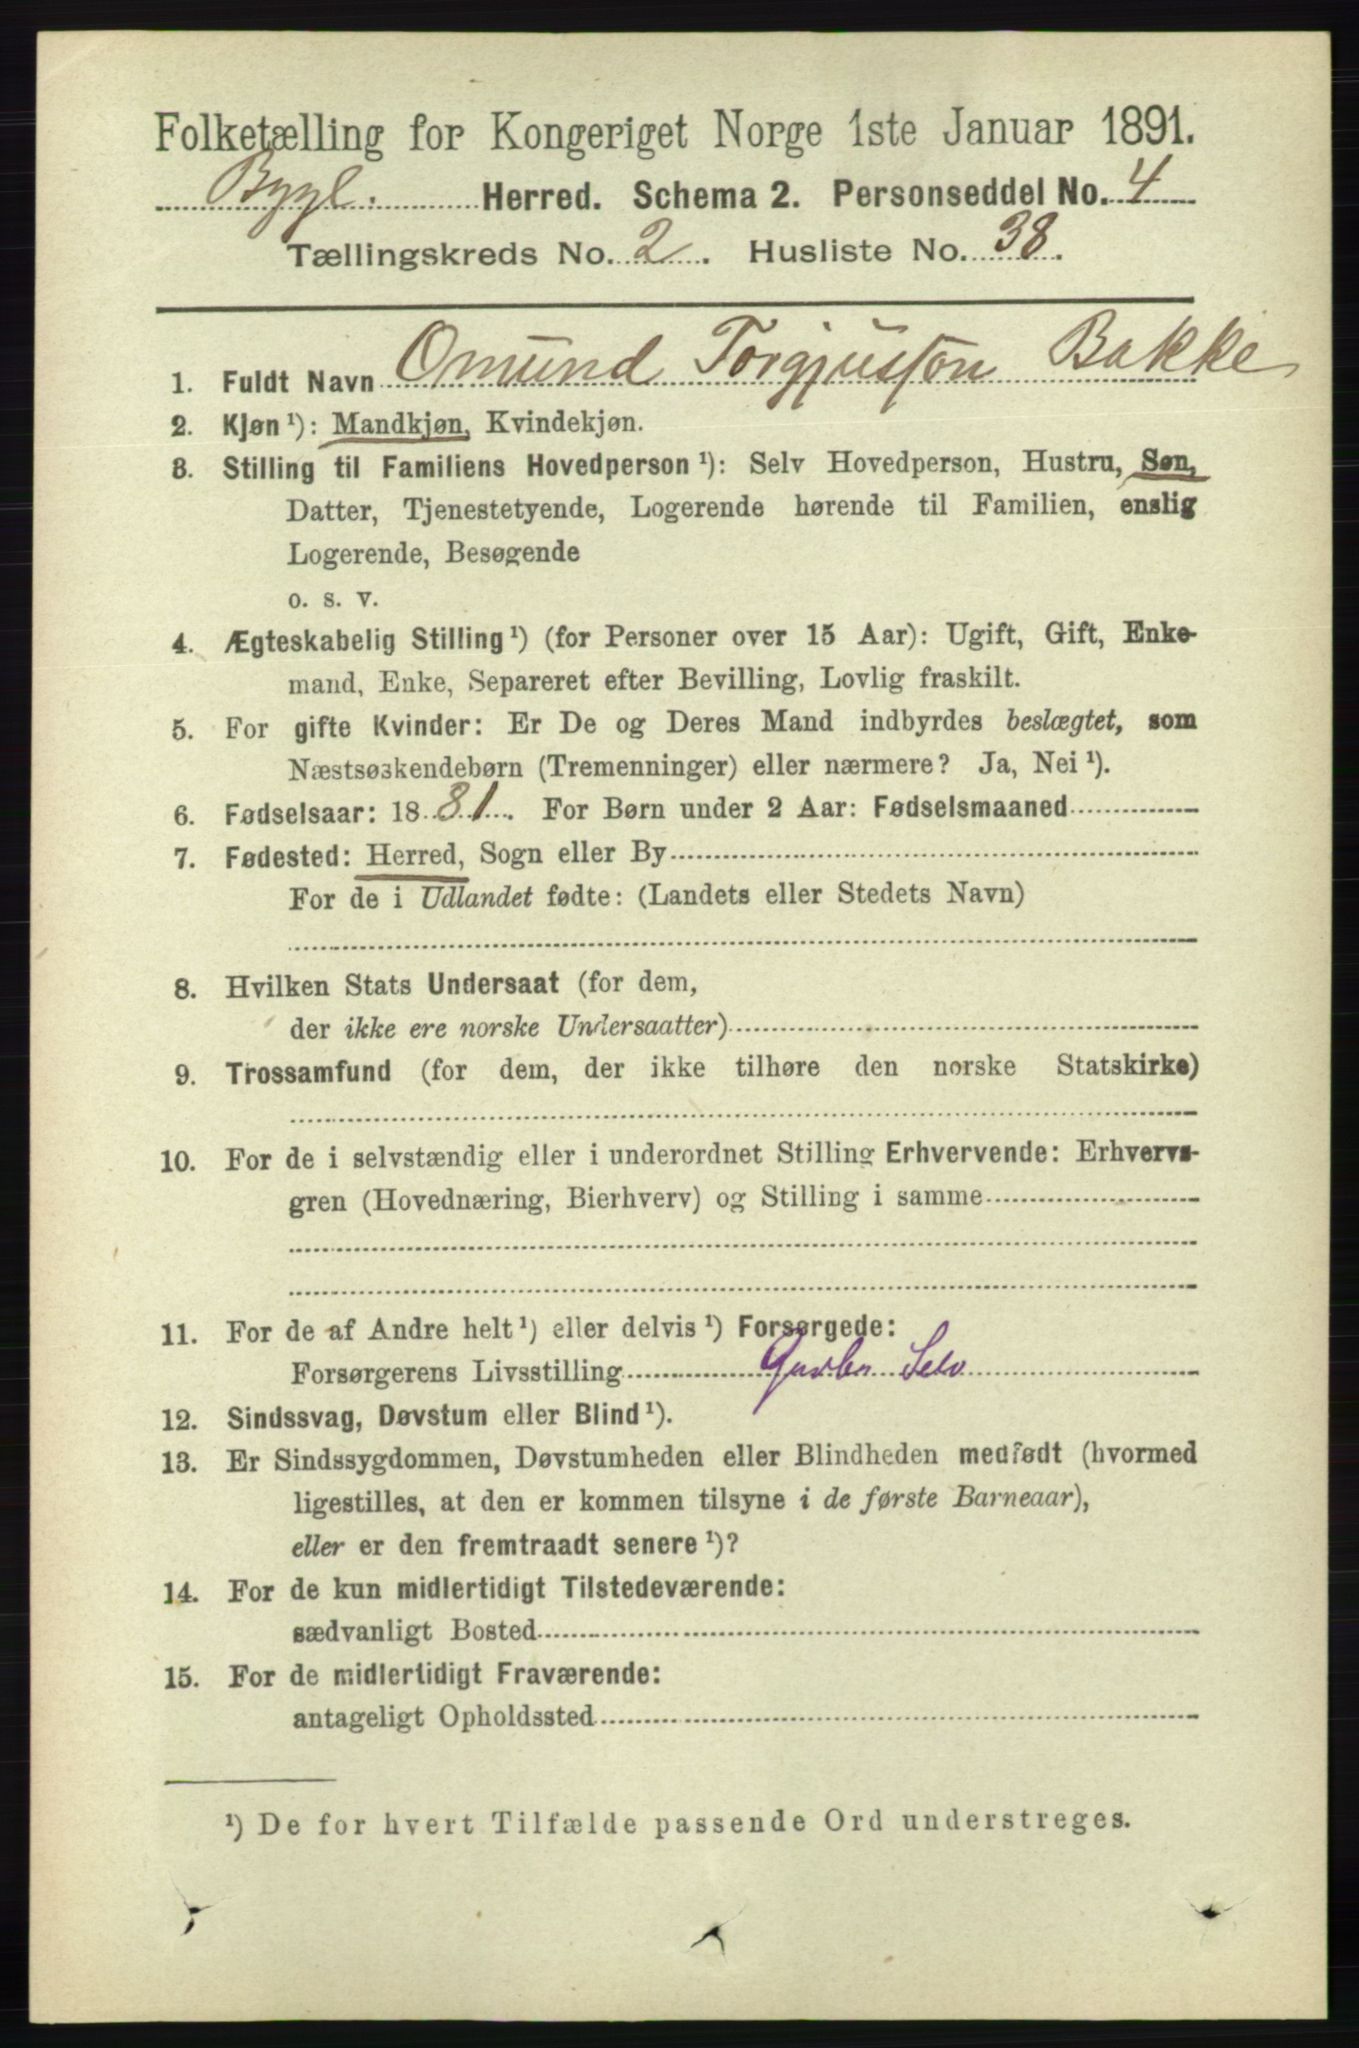 Folketælling for Kongeriget Norge 1ste Januar 1891.
Bygl. Herred. Schema 2. Personseddel No. 4
Tællingskreds No. 2. Husliste No. 38.
1. Fuldt Navn Omund Torgjussøn Bakke
2. Kjøn ¹): Mandkjøn, Kvindekjøn.
3. Stilling til Familiens Hovedperson ¹): Selv Hovedperson, Hustru, Søn,
Datter, Tjenestetyende, Logerende hørende til Familien, enslig
Logerende, Besøgende
o. s. v.
4. Ægteskabelig Stilling ¹) (for Personer over 15 Aar): Ugift, Gift, Enke-
mand, Enke, Separeret efter Bevilling, Lovlig fraskilt.
5. For gifte Kvinder: Er De og Deres Mand indbyrdes beslægtet, som
Næstsøskendebørn (Tremenninger) eller nærmere? Ja, Nei ¹).
6. Fødselsaar: 1881. For Børn under 2 Aar: Fødselsmaaned
7. Fødested: Herred, Sogn eller By
For de i Udlandet fødte: (Landets eller Stedets Navn)
8. Hvilken Stats Undersaat (for dem,
der ikke ere norske Undersaatter)
9. Trossamfund (for dem, der ikke tilhøre den norske Statskirke)
10. For de i selvstændig eller i underordnet Stilling Erhvervende: Erhvervs-
gren (Hovednæring, Bierhverv) og Stilling i samme
11. For de af Andre helt ¹) eller delvis ¹) Forsørgede:
Forsørgerens Livsstilling Gaarbr Selv
12. Sindssvag, Døvstum eller Blind ¹).
13. Er Sindssygdommen, Døvstumheden eller Blindheden medfødt (hvormed
ligestilles, at den er kommen tilsyne i de første Barneaar),
eller er den fremtraadt senere ¹)?
14. For de kun midlertidigt Tilstedeværende:
sædvanligt Bosted
15. For de midlertidigt Fraværende:
antageligt Opholdssted
¹) De for hvert Tilfælde passende Ord understreges.